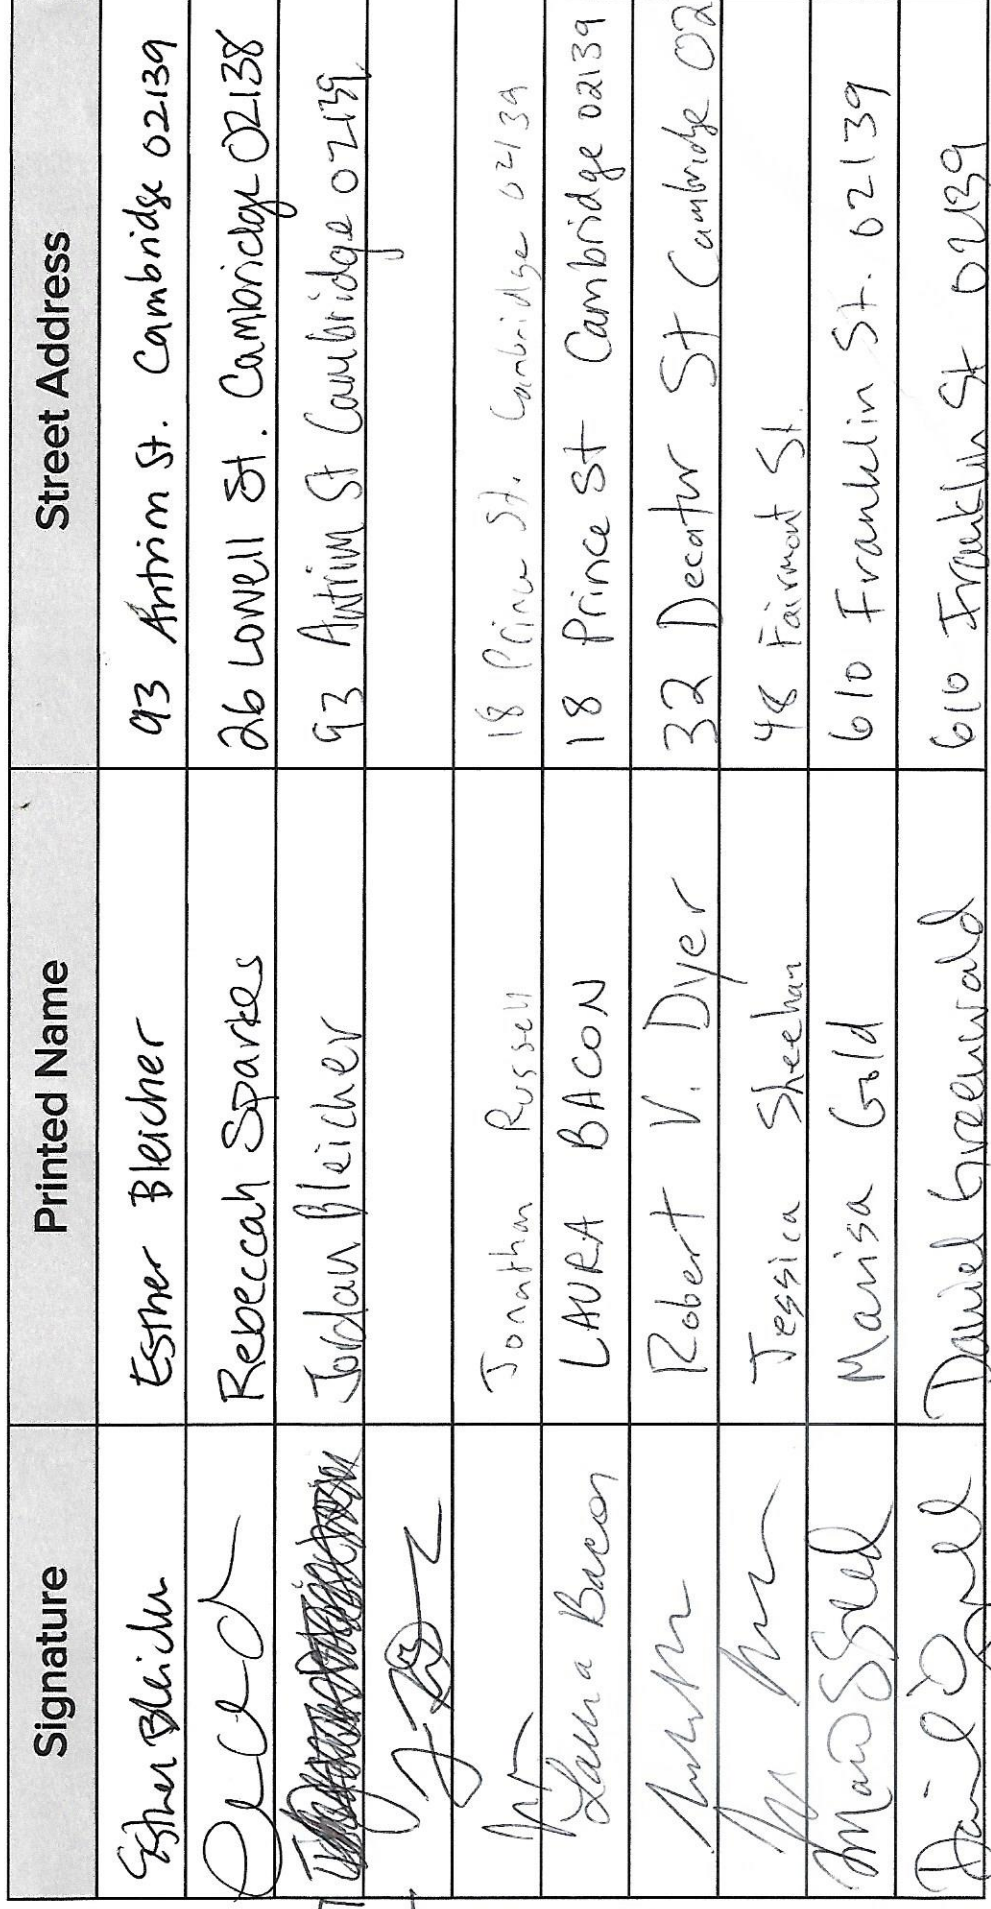 Signature Printed Name Street Address
Esther Bleicher Esther Bleicher 93 Antrim St. Cambridge 02139
Rebeccah Sparkes 26 Lowell St. Cambridge 02138
Jordan Bleicher 93 Antrim St Cambridge 02139
Jonathan Russell 18 Prince St. Cambridge 02139
Laura Bacon LAURA BACON 18 Prince St Cambridge 02139
Robert V. Dyer 32 Decatur St Cambridge 02
Jessica Sheehan 48 Fairmont St.
Marisa Gold 610 Franklin St. 02139
Daniel Greenwald 610 Franklin St 02139